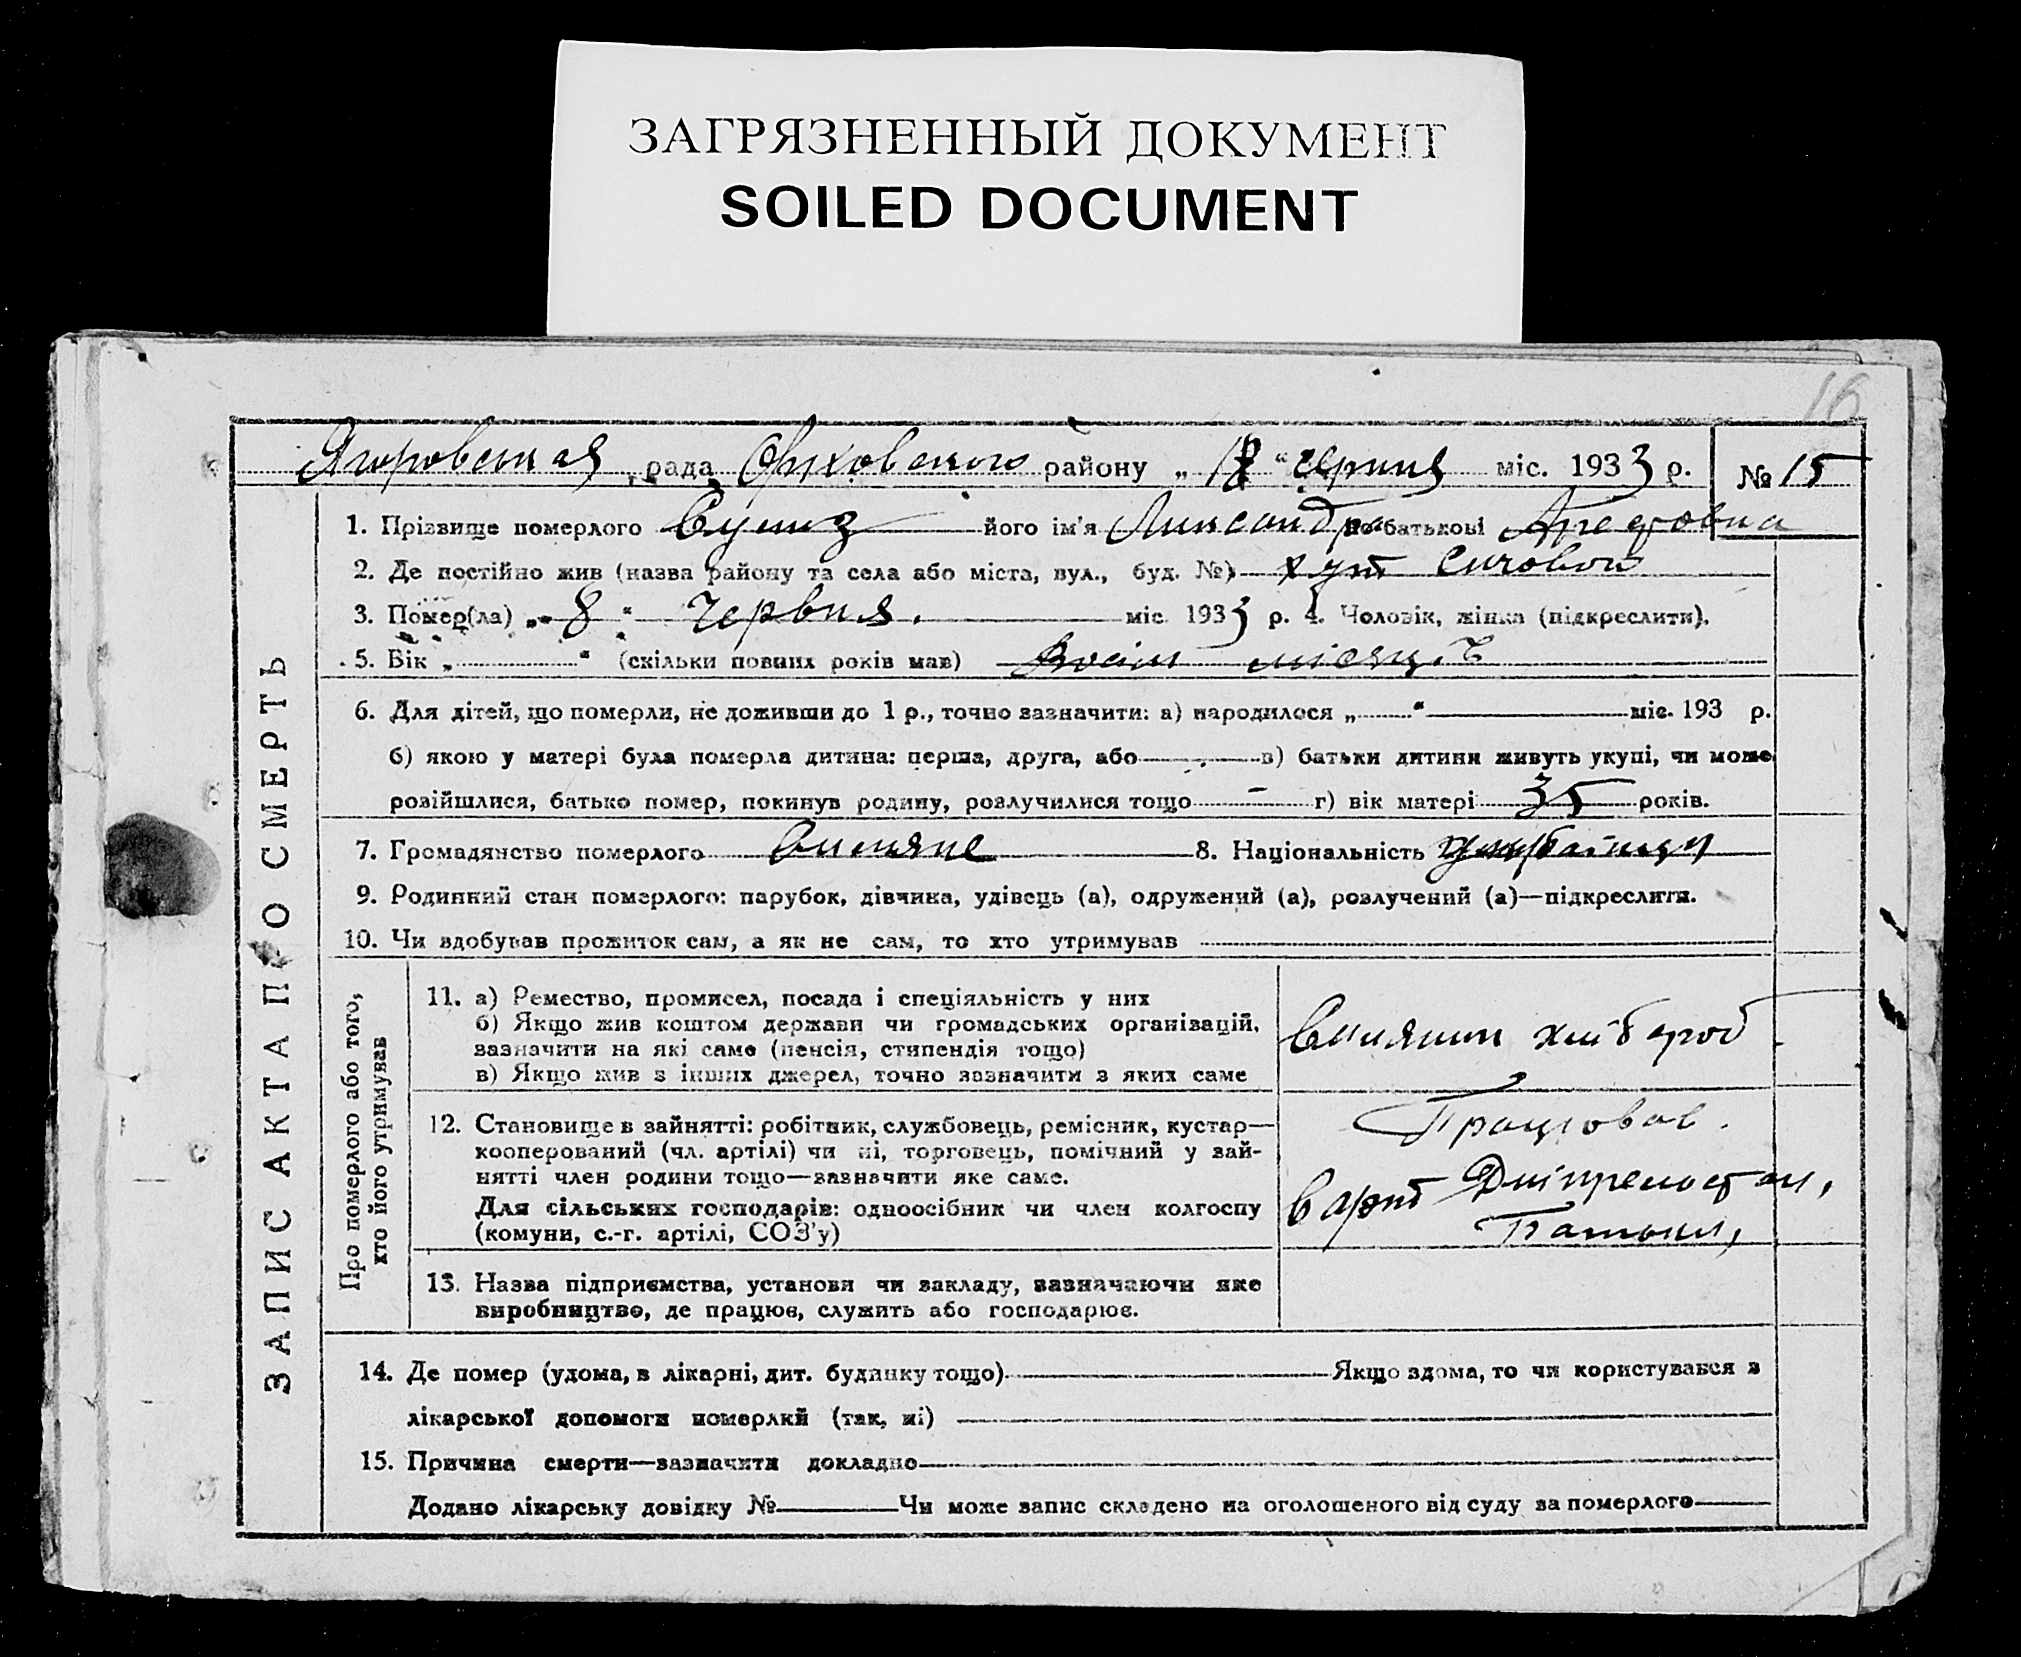 ЗАГРЯЗНЕННЫЙ ДОКУМЕНТ
SOILED DOCUMENT
16
рада района району „ " червня міс. 1933 р. № 15
ЗАПИС АКТА ПРО СМЕРТЬ
1. Прізвище померлого його ім'я по батькові
2. Де постійно жив (назва району та села або міста, вул., буд. №) хут
3. Помер(ла) „ 8 " Червня. міс. 1933 р. 4. Чоловік, жінка (підкреслити).
5. Вік „ " (скільки повних років мав) Восім місяців
6. Для дітей, що померли, не доживши до 1 р., точно зазначити: а) народилося „ " міс. 193 р.
б) якою у матері була померла дитина: перша, друга, або в) батьки дитини живуть укупі, чи може
розійшлися, батько помер, покинув родину, розлучилися тощо – г) вік матері 35 років.
7. Громадянство померлого 8. Національність
9. Родинний стан померлого: парубок, дівчина, удівець (а), одружений (а), розлучений (а)—підкреслити.
10. Чи здобував прожиток сам, а як не сам, то хто утримував
Про померлого або того,
хто його утримував
11. а) Ремество, промисел, посада і спеціяльність у них
б) Якщо жив коштом держави чи громадських організацій,
зазначити на які саме (пенсія, стипендія тощо)
в) Якщо жив з інших джерел, точно зазначити з яких саме
12. Становище в зайнятті: робітник, службовець, ремісник, кустар—
кооперований (чл. артілі) чи ні, торговець, помічний у зай-
нятті член родини тощо—зазначити яке саме.
Для сільських господарів: одноосібник чи член колгоспу
(комуни, с.-г. артілі, СОЗ'у)
Працював.
в арт
13. Назва підприємства, установи чи закладу, зазначаючи яке
виробництво, де працює, служить або господарює.
14. Де помер (удома, в лікарні, дит. будинку тощо) Якщо вдома, то чи користувався з
лікарської допомоги померлий (так, ні)
15. Причина смерти—зазначити докладно
Додано лікарську довідку № Чи може запис складено на оголошеного від суду за померлого